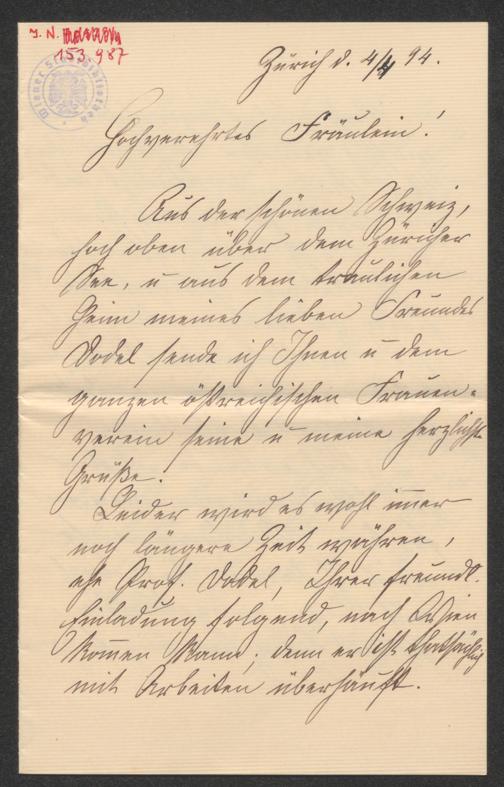 J. N.
153.987
Wiener Stadtbibliothek
Zürich d. 4/4 94.
Hochverehrtes Fräulein!
Aus der schönen Schweiz,
hoch oben über dem Züricher
See, u aus dem traulichen
Heim meines lieben Freundes
Dodel sende ich Ihnen u dem
ganzen östreichischen Frauen-
verein seine u meine herzlichst
Grüße.
Leider wird es wohl im̅er
noch längere Zeit währen,
ehe Prof. Dodel, Ihrer freundl.
Einladung folgend, nach Wien
kom̅en kann; denn er ist thatsächlich
mit Arbeiten überhäuft.